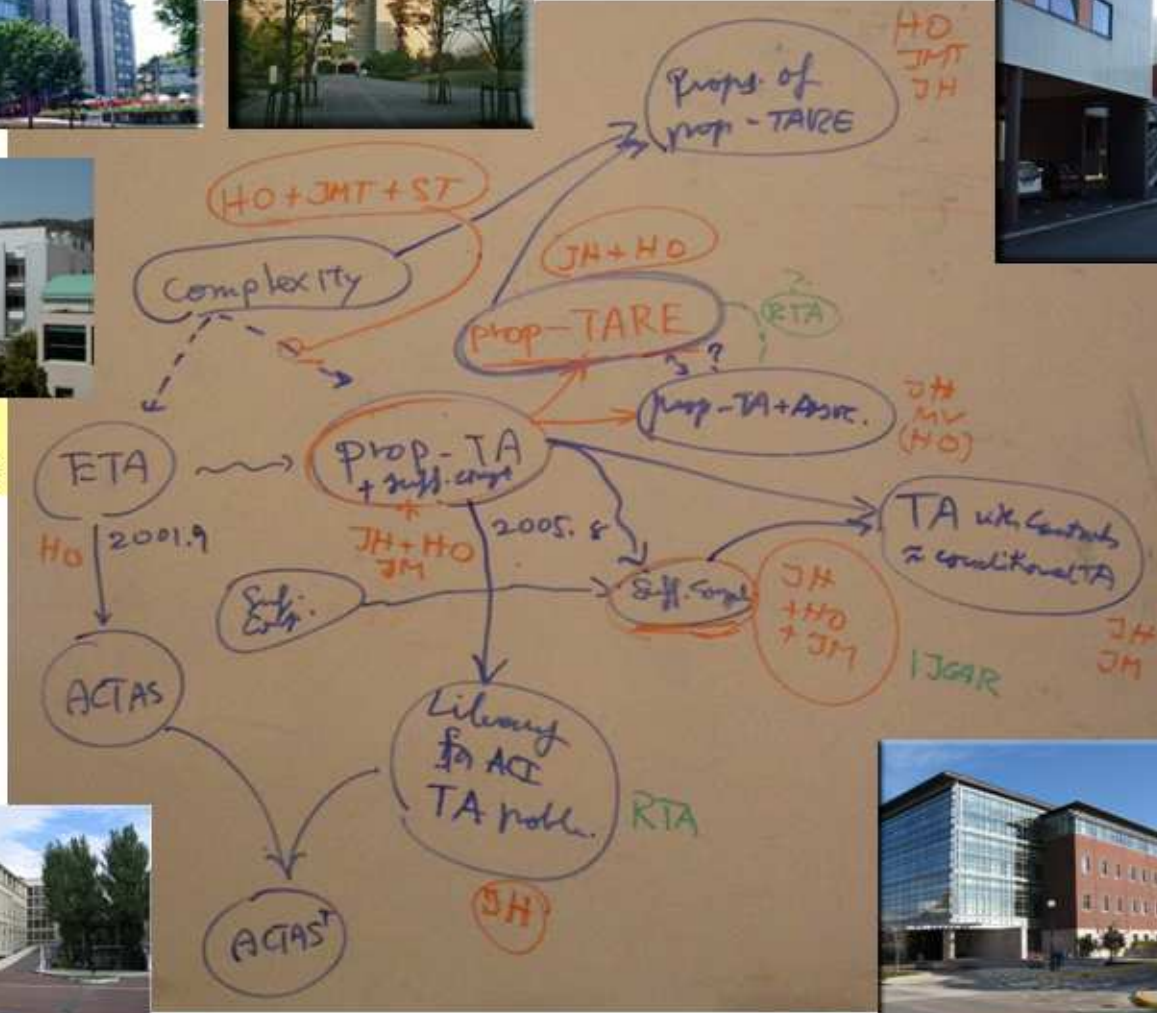 HO
JMT
JH
Props. of
prop-TARE
HO + JMT + ST
Complexity
JH + HO
prop-TARE
?
RTA
?
prop-TA + Assoc.
JH
MV
(HO)
ETA
prop-TA
+ suff. compl
*
JH + HO
JM
HO
2001.9
2005.8
TA with Controls
≈ conditional TA
JH
JM
Suff.
Suff. Compl
JH
+ HO
+ JM
IJCAR
ACTAS
Library
for ACI
TA probl.
RTA
JH
ACTAS+